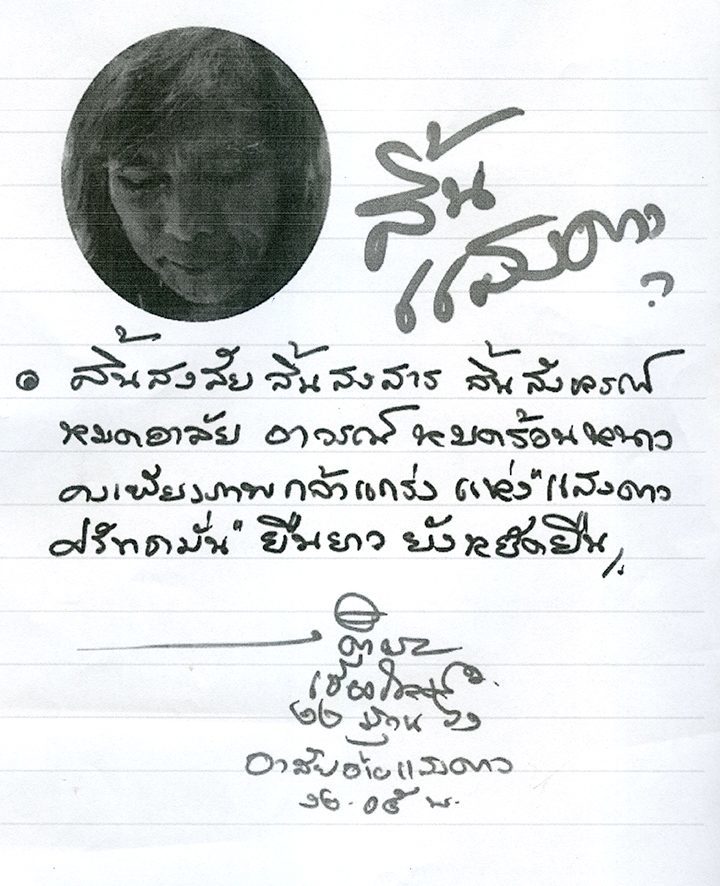 สิ้น
แสงดาว
?
๏ สิ้นสงสัย สิ้นสงสาร สิ้นสังขรณ์
หมดอาลัย อาวรณ์ หมดร้อนหนาว
คงเพียงภาพกล้าแกร่ง แห่ง"แสงดาว
ศรัทธามั่น" ยืนยาว ยังหยัดยืน
๒๒
อาลัยอ้ายแสงดาว
๑๒.๐๕ น.